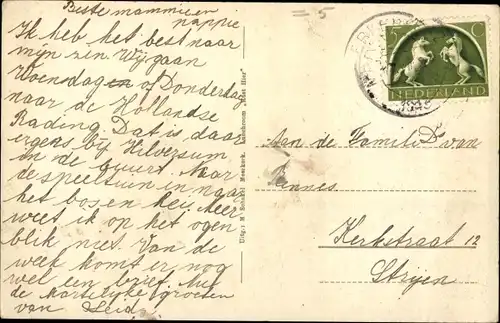 Beste mammie en
pappie
Ik heb het best naar
mijn zin. Wij gaan
Woensdag of Donderdag
naar de Hollandse
Rading. Dat is daar
ergens bij Hilversum
in de buurt. Naar
de speeltuin en naar
het bos en hei. Meer
weet ik op het ogen
blik niet. Van de
week komt er nog
wel een brief. Met
de hartelijke groeten
van
= 5
5 C
NEDERLAND
Aan de Familie D. van
Kerkstraat 12
Strijen